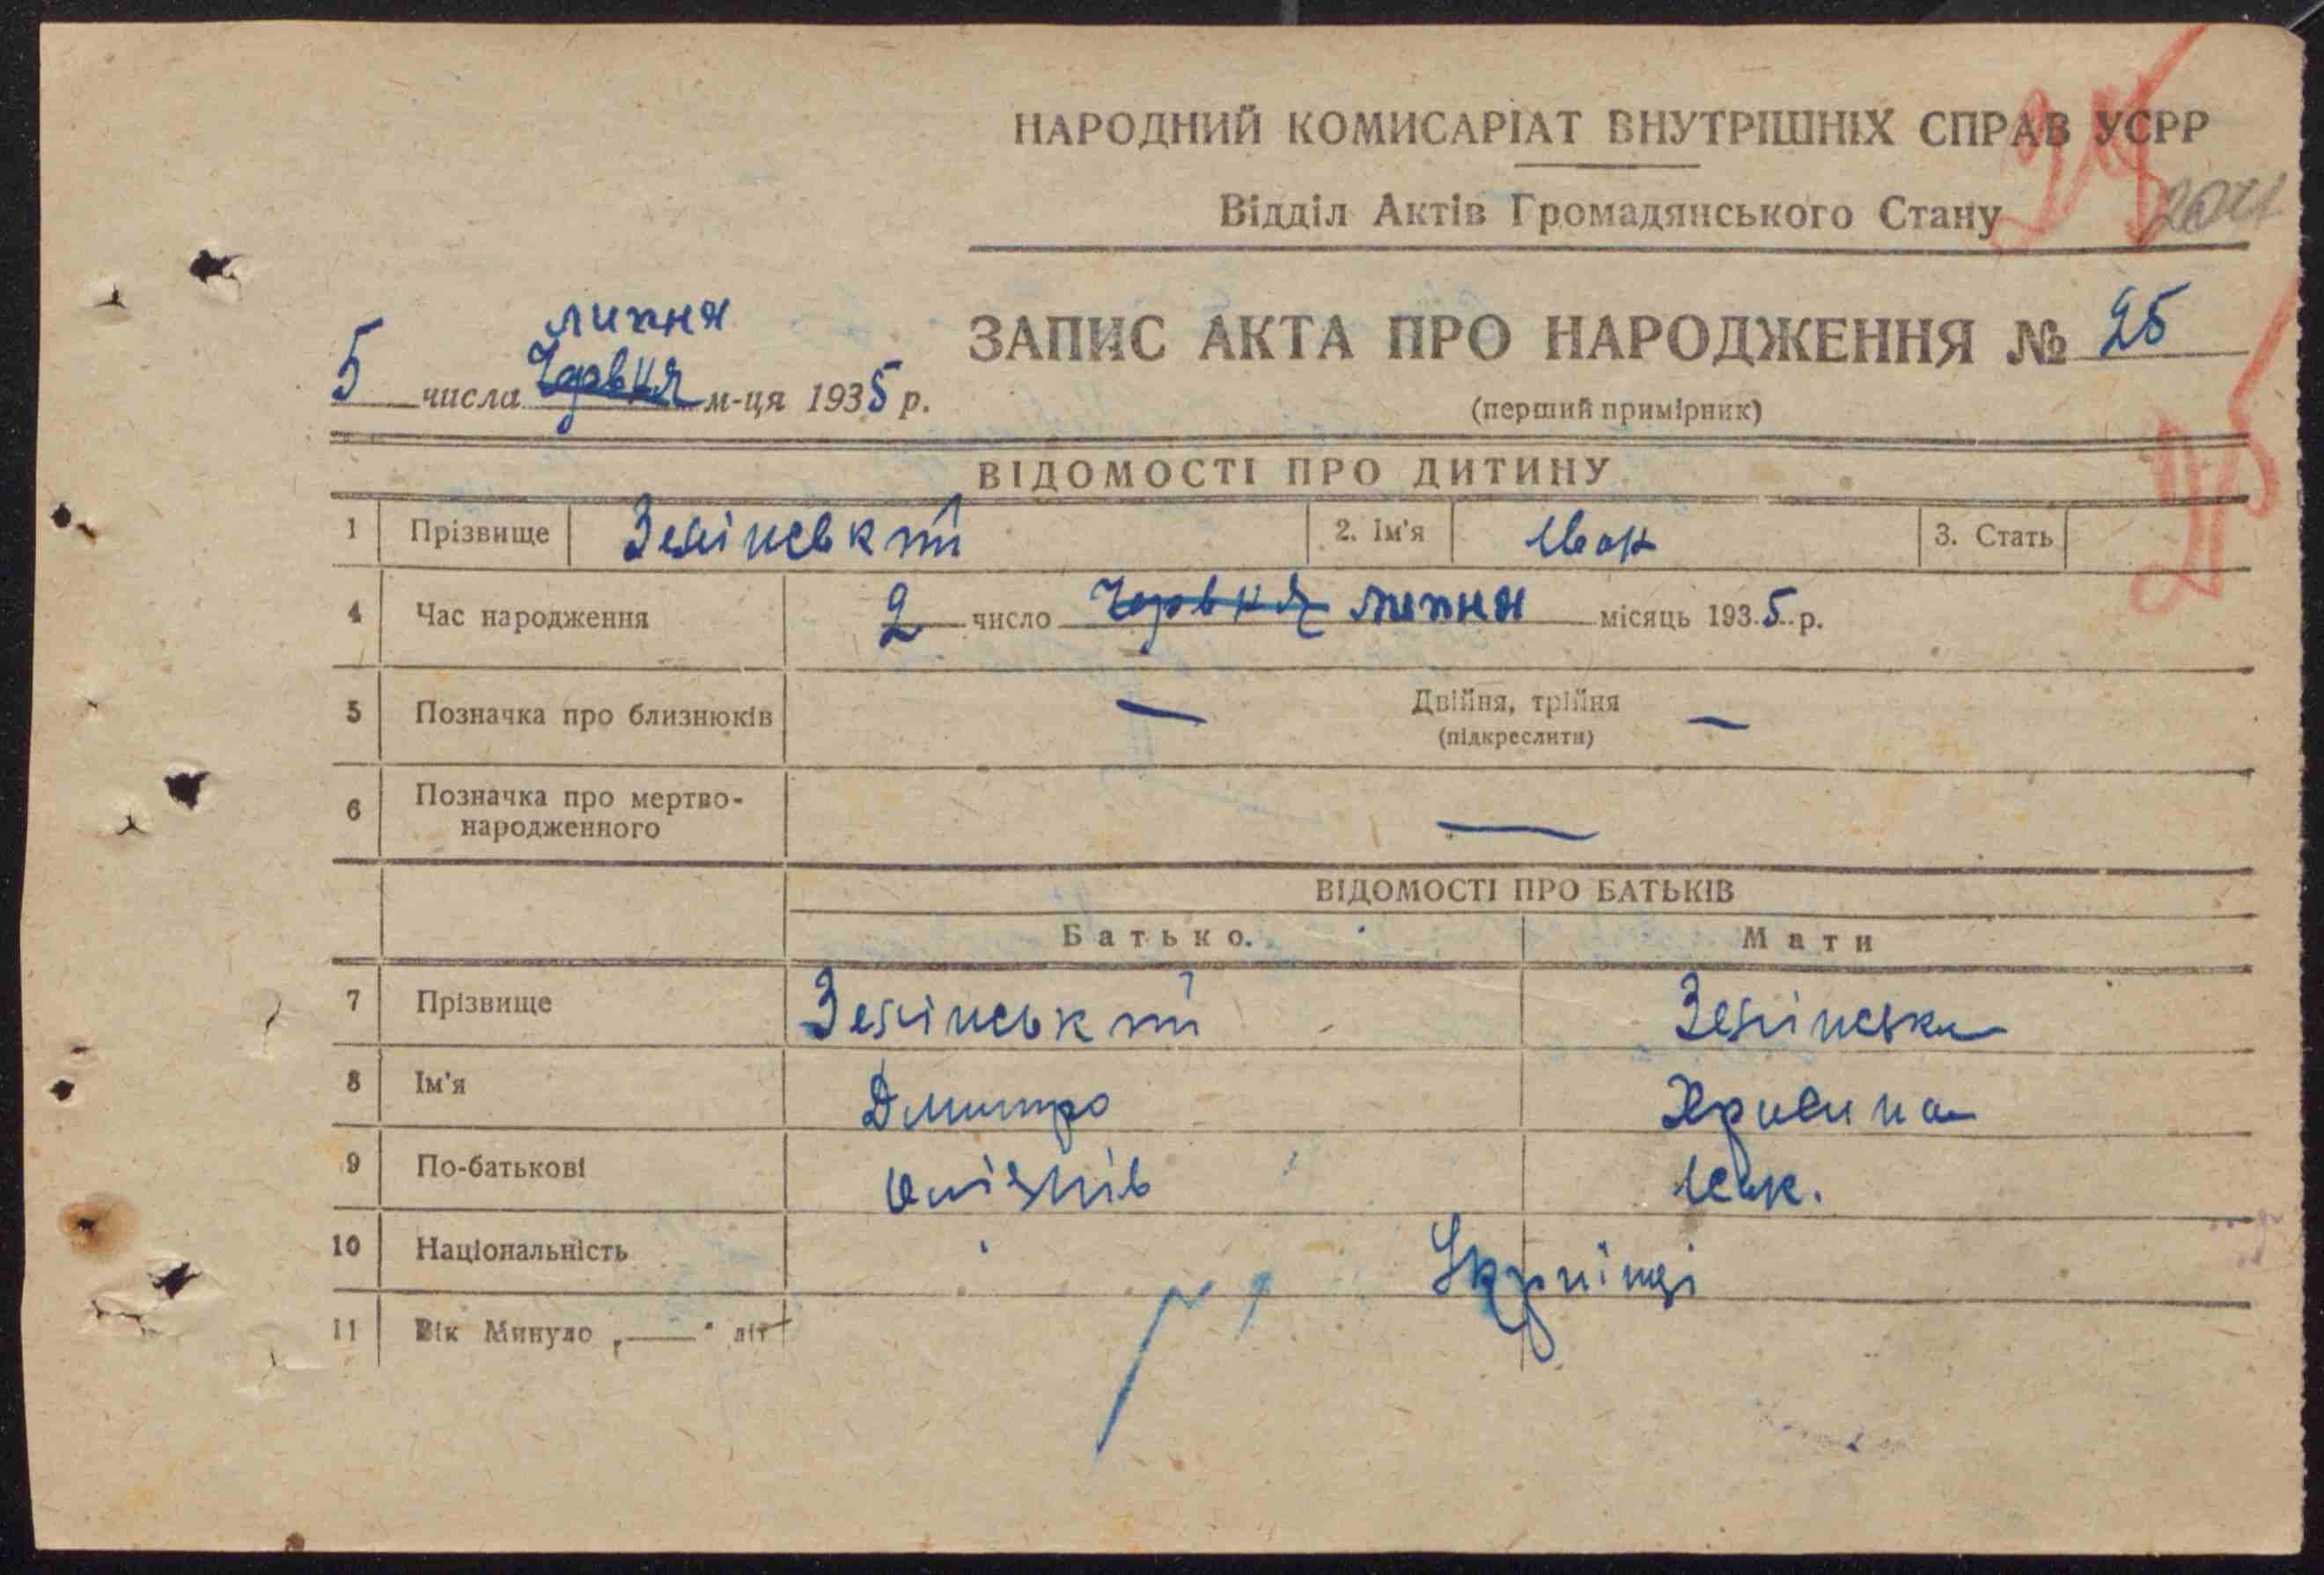 НАРОДНИЙ КОМИСАРІАТ ВНУТРІШНІХ СПРАВ УСРР
Відділ Актів Громадянського Стану
25
ЗАПИС АКТА ПРО НАРОДЖЕННЯ № 25
(перший примірник)
липня
5 числа Червня м-ця 1935 р.
ВІДОМОСТІ ПРО ДИТИНУ
1 Прізвище Зелінський 2. Ім'я Іван 3. Стать
4 Час народження 2 число Червня липня місяць 1935 р.
5 Позначка про близнюків — Двійня, трійня —
(підкреслити)
6 Позначка про мертво-
народженного —
ВІДОМОСТІ ПРО БАТЬКІВ
Батько. Мати
7 Прізвище Зелінський Зелінська
8 Ім'я Дмитро
9 По-батькові
10 Національність Українці
11 Вік Минуло „—" літ